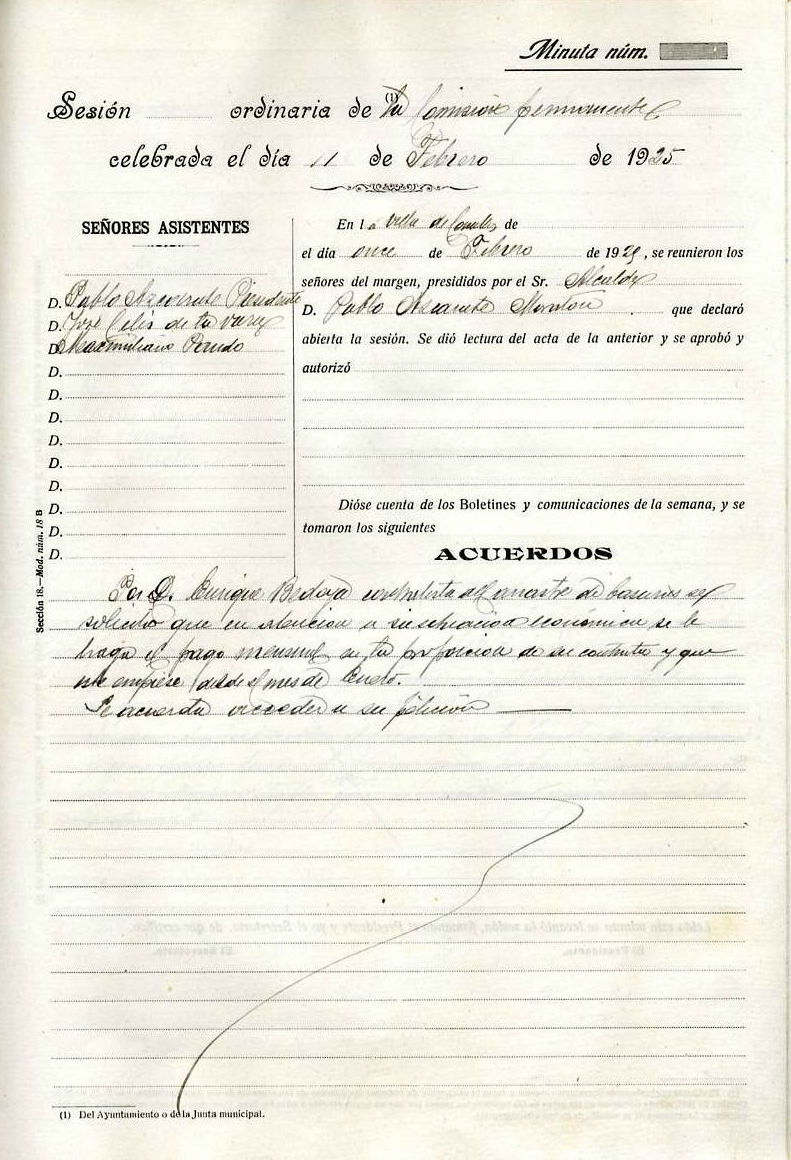 Minuta núm.
Sesión ordinaria de (1) la Comisión permanente
celebrada el día 11 de Febrero de 1925
SEÑORES ASISTENTES
D. Pablo Azcarate Presidente
D. José Celis de la
D. Maximiliano Pardo
D.
D.
D.
D.
D.
D.
D.
D.
D.
En la villa de de
el día once de Febrero de 1925, se reunieron los
señores del margen, presididos por el Sr. Alcalde
D. Pablo que declaró
abierta la sesión. Se dió lectura del acta de la anterior y se aprobó y
autorizó
Dióse cuenta de los Boletines y comunicaciones de la semana, y se
tomaron los siguientes
ACUERDOS
Por D. Enrique Bedoya contratista del arrastre de basuras se
solicito que en atencion a su situacion económica se le
haga el pago mensual en la proporcion de su contrato y que
empiese desde el mes de Enero.
Se acuerda acceder a su peticion
Sección 18.—Mod. núm. 18 B
(1) Del Ayuntamiento o de la Junta municipal.